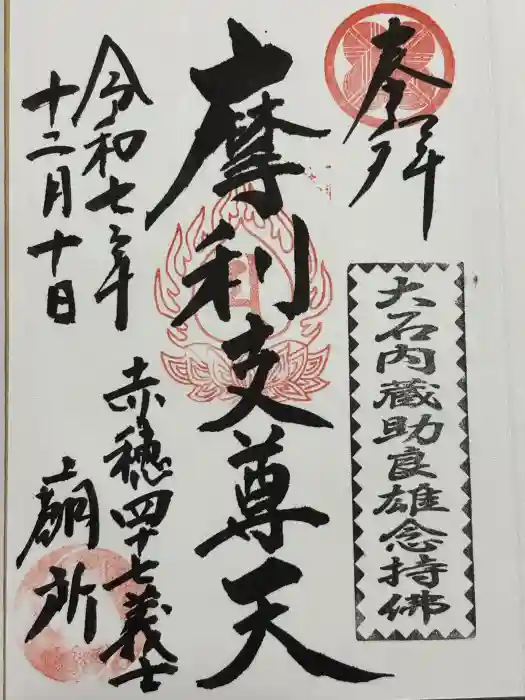 奉拝
大石内蔵助良雄念持佛
摩利支尊天
令和七年
十二月十日
赤穂四十七義士
廟所